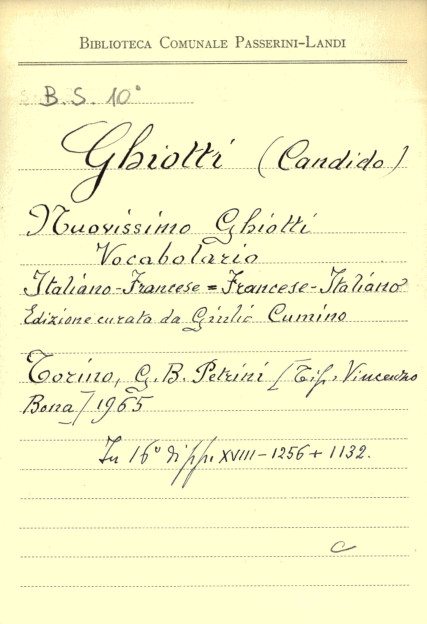 BIBLIOTECA COMUNALE PASSERINI-LANDI
B. S. 10°
Ghiotti (Candido)
Nuovissimo Ghiotti
Vocabolario
Italiano-Francese = Francese-Italiano
Edizione curata da Giulio Cumino
Torino, G. B. Petrini [Tip. Vincenzo
Bona] 1965
In 16° di pp. XVIII-1256 + 1132.
C